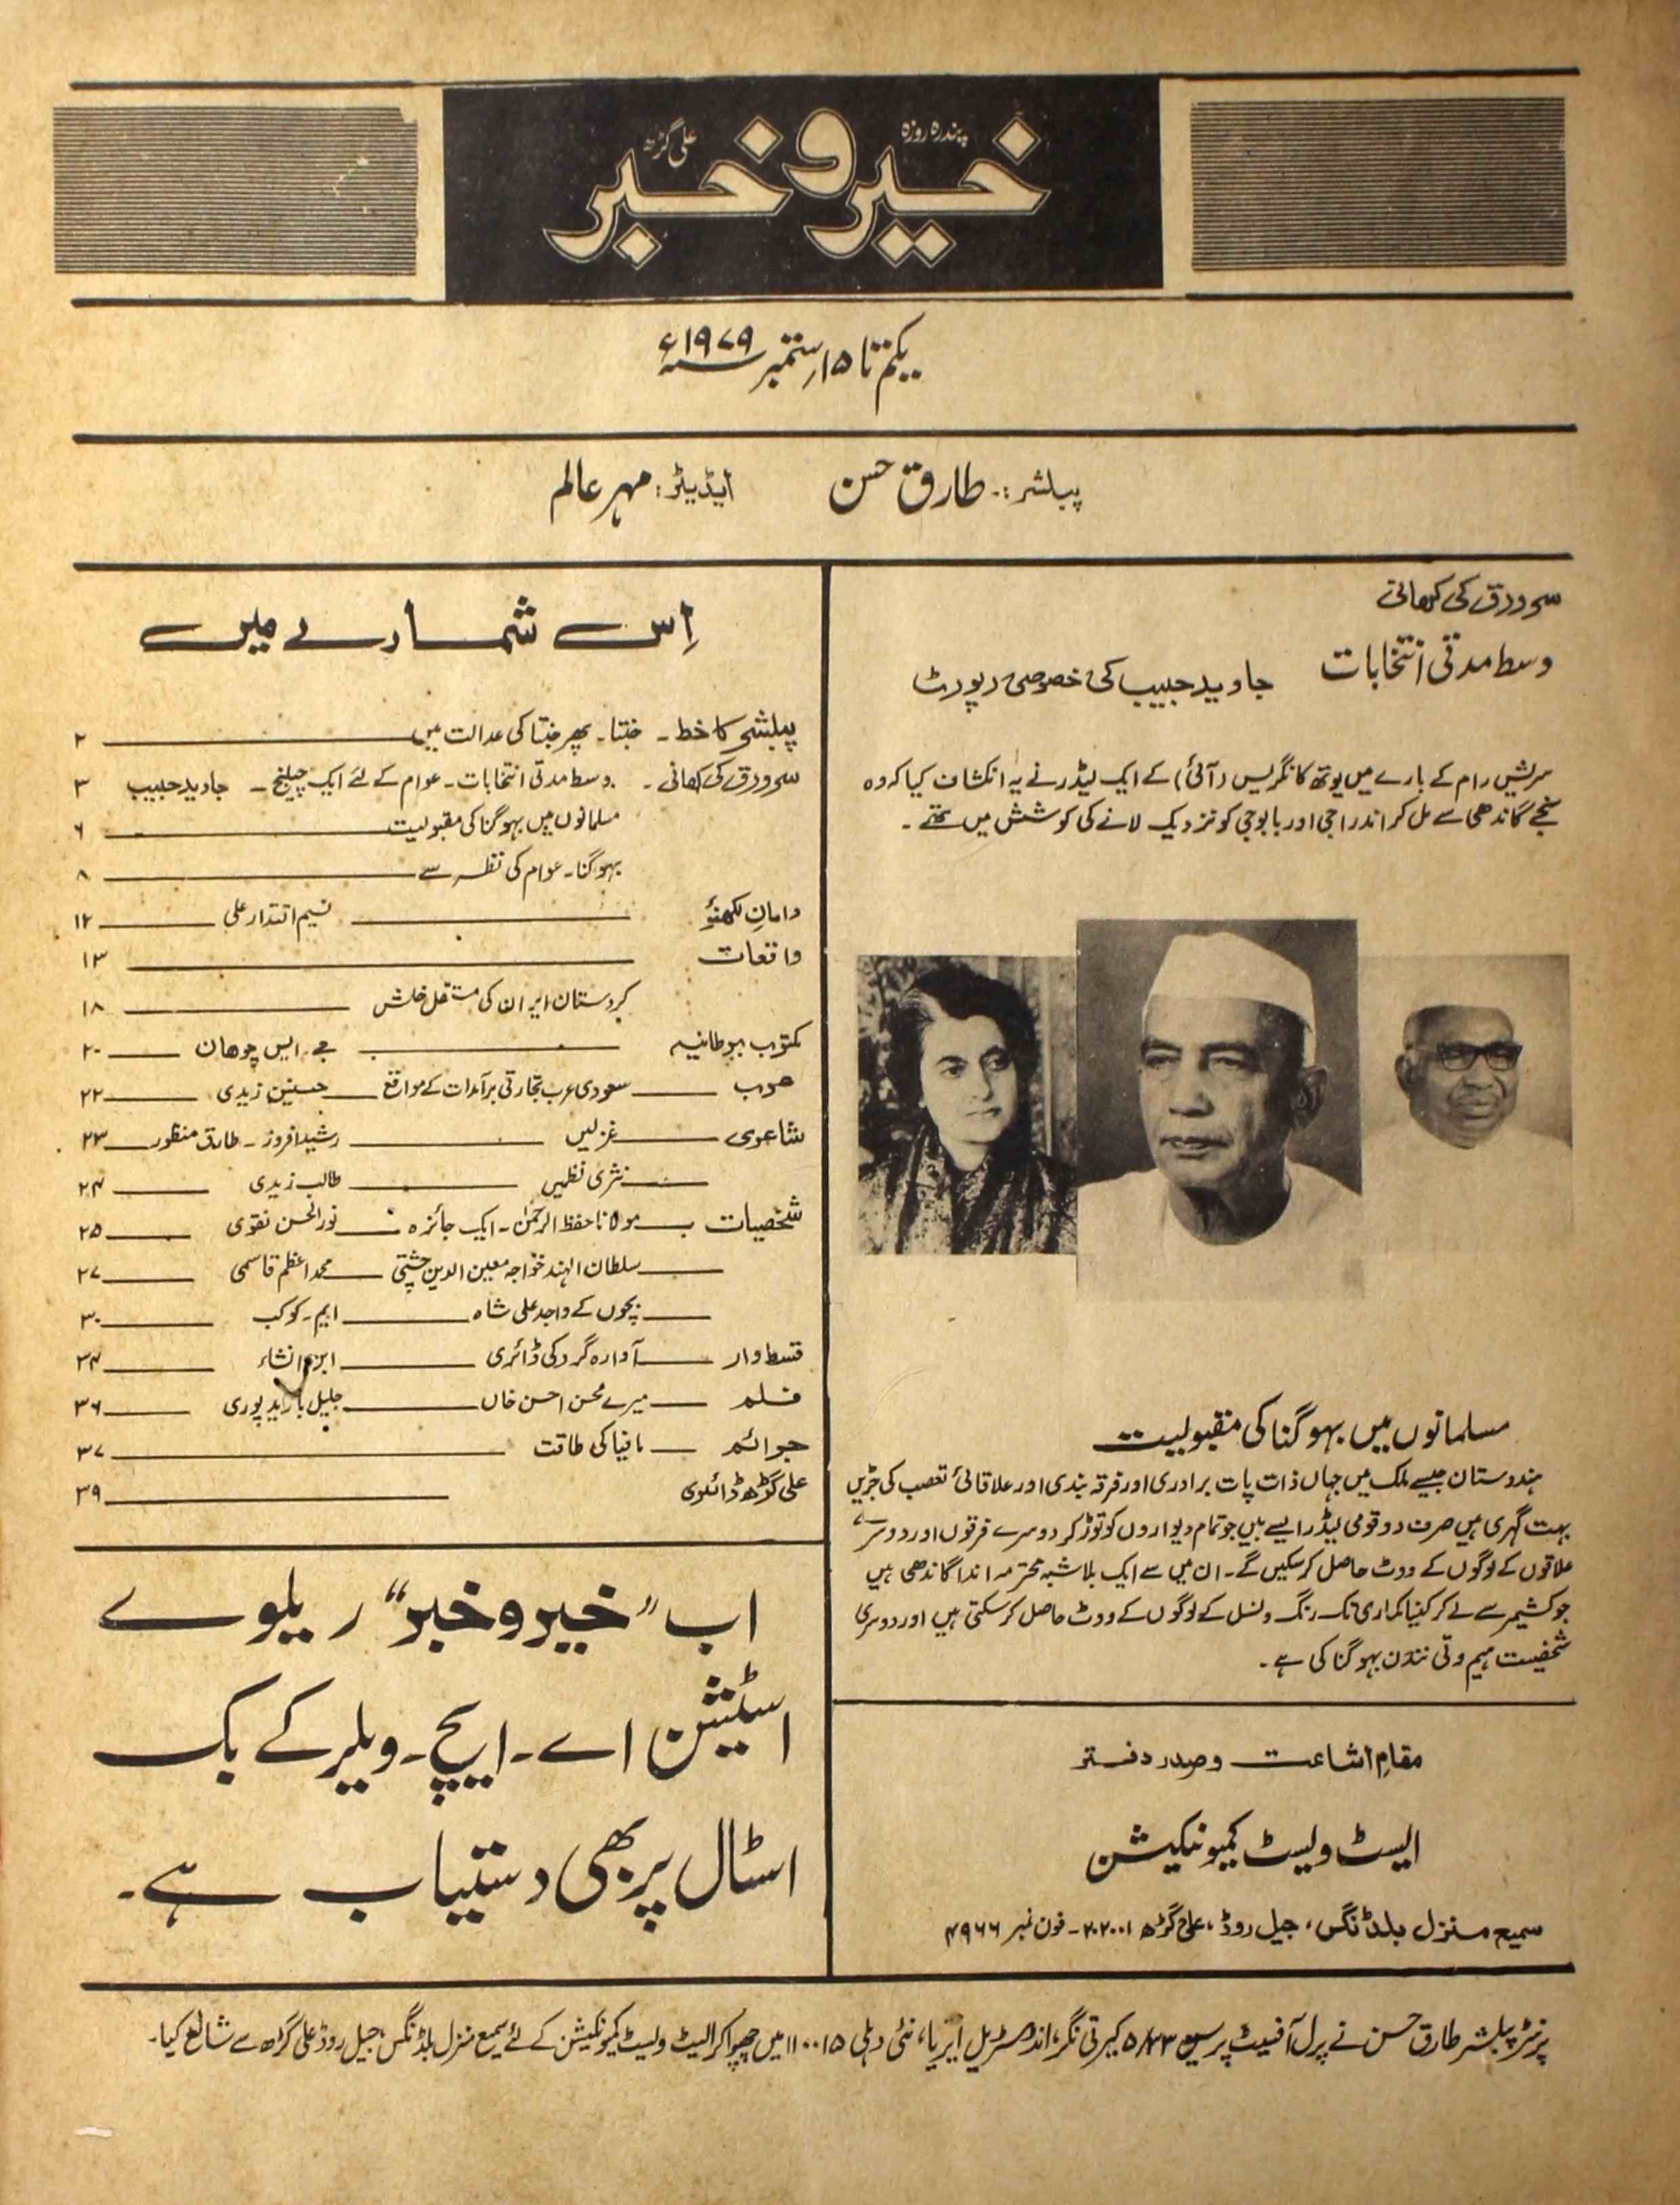 پندرہ روزہ
خیر و خبر
علی گڑھ
یکم تا ۱۵؍ ستمبر ۱۹۷۹ء
پبلشر:۔ طارق حسن
ایڈیٹر: مہر عالم
سرورق کی کہانی
وسط مدتی انتخابات جاوید حبیب کی خصوصی رپورٹ
سریش رام کے بارے میں یوتھ کانگریس (آئی) کے ایک لیڈر نے یہ انکشاف کیا کہ وہ
سنجے گاندھی سے مل کر اندرا جی اور بابوجی کو نزدیک لانے کی کوشش میں تھے۔
مسلمانوں میں بہوگنا کی مقبولیت
ہندوستان جیسے ملک میں جہاں ذات پات برادری اور فرقہ بندی اور علاقائی تعصب کی جڑیں
بہت گہری ہیں صرف دو قومی لیڈر ایسے ہیں جو تمام دیواروں کو توڑ کر دوسرے فرقوں اور دوسرے
علاقوں کے لوگوں کے ووٹ حاصل کر سکیں گے۔ ان میں سے ایک بلاشبہ محترمہ اندا گاندھی ہیں
جو کشمیر سے لے کر کنیا کماری تک رنگ و نسل کے لوگوں کے ووٹ حاصل کر سکتی ہیں اور دوسری
شخصیت ہیم وتی نندن بہوگنا کی ہے۔
مقامِ اشاعت و صدر دفتر
ایسٹ ویسٹ کمیونیکیشن
سمیع منزل بلڈنگس، جیل روڈ، علی گڑھ ۲۰۲۰۰۱۔ فون نمبر ۴۹۶۶
اِس شمارے میں
پبلشر کا خط ۔ جنتا ۔ پھر جنتا کی عدالت میں ۲
سرورق کی کہانی ۔ وسط مدتی انتخابات ۔ عوام کے لئے ایک چیلنج ۔ جاوید حبیب ۳
مسلمانوں میں بہوگنا کی مقبولیت ۶
بہوگنا ۔ عوام کی نظر سے ۸
دامانِ لکھنؤ نسیم اقتدار علی ۱۲
واقعات ۱۳
کردستان ایران کی مستقل خلش ۱۸
مکتوب برطانیہ جے۔ ایس چوهان ۲۰
عرب سعودی عرب تجارتی برآمدات کے مواقع حسنین زیدی ۲۲
شاعری غزلیں رشید افروز ۔ طارق منظور ۲۳
نثری نظمیں طالب زیدی ۲۴
شخصیات مولانا حفظ الرحمٰن ۔ ایک جائزہ نورالحسن نقوی ۲۵
سلطان الہند خواجہ معین الدین چشتی محمد اعظم قاسمی ۲۷
بچوں کے واجد علی شاہ ایم۔ کوکب ۳۰
قسط وار آوارہ گرد کی ڈائری ابن انشاء ۳۴
فلم میرے محسن احسن خاں جلیل بازید پوری ۳۶
جرائم مافیا کی طاقت ۳۷
علی گڑھ ڈائری ۳۹
اب "خیر و خبر" ریلوے
اسٹیشن اے۔ ایچ۔ ویلر کے بک
اسٹال پر بھی دستیاب ہے۔
پرنٹر پبلشر طارق حسن نے پرل آفسیٹ پریس ۵/۳۳ کیرتی نگر، انڈسٹریل ایریا، نئی دہلی ۱۱۰۰۱۵ میں چھپوا کر ایسٹ ویسٹ کمیونکیشن کے لئے سمیع منزل بلڈنگس، جیل روڈ علی گڑھ سے شائع کیا۔